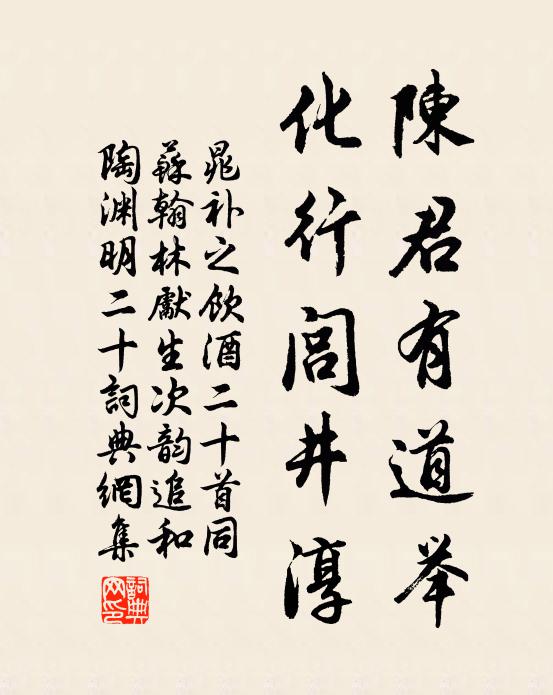 陳君有道举
化行闾井淳
晁补之饮酒二十首同
蘇翰林獻生次韵追和
陶渊明二十詞典網集
詞典网印